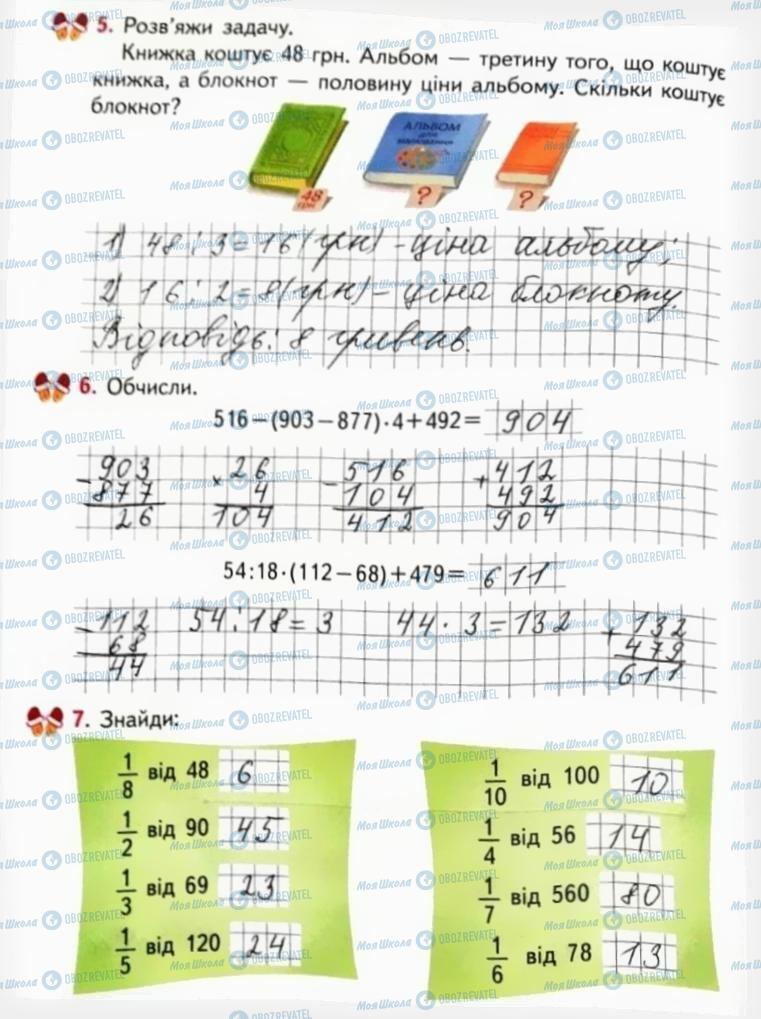 5. Розв'яжи задачу.
Книжка коштує 48 грн. Альбом — третину того, що коштує
книжка, а блокнот — половину ціни альбому. Скільки коштує
блокнот?
АЛЬБОМ
ДЛЯ
МАЛЮВАННЯ
48
грн.
?
?
1) 48 : 3 = 16 (грн) - ціна альбому;
2) 16 : 2 = 8 (грн) - ціна блокноту.
Відповідь: 8 гривень.
6. Обчисли.
516 – (903 – 877) · 4 + 492 = 904
903 26 516 412
– 877 × 4 – 104 + 492
26 104 412 904
54 : 18 · (112 – 68) + 479 = 611
112 54 : 18 = 3 44 · 3 = 132 132
– 68 + 479
44 611
7. Знайди:
1/8 від 48 6
1/2 від 90 45
1/3 від 69 23
1/5 від 120 24
1/10 від 100 10
1/4 від 56 14
1/7 від 560 80
1/6 від 78 13
Моя Школа OBOZREVATEL